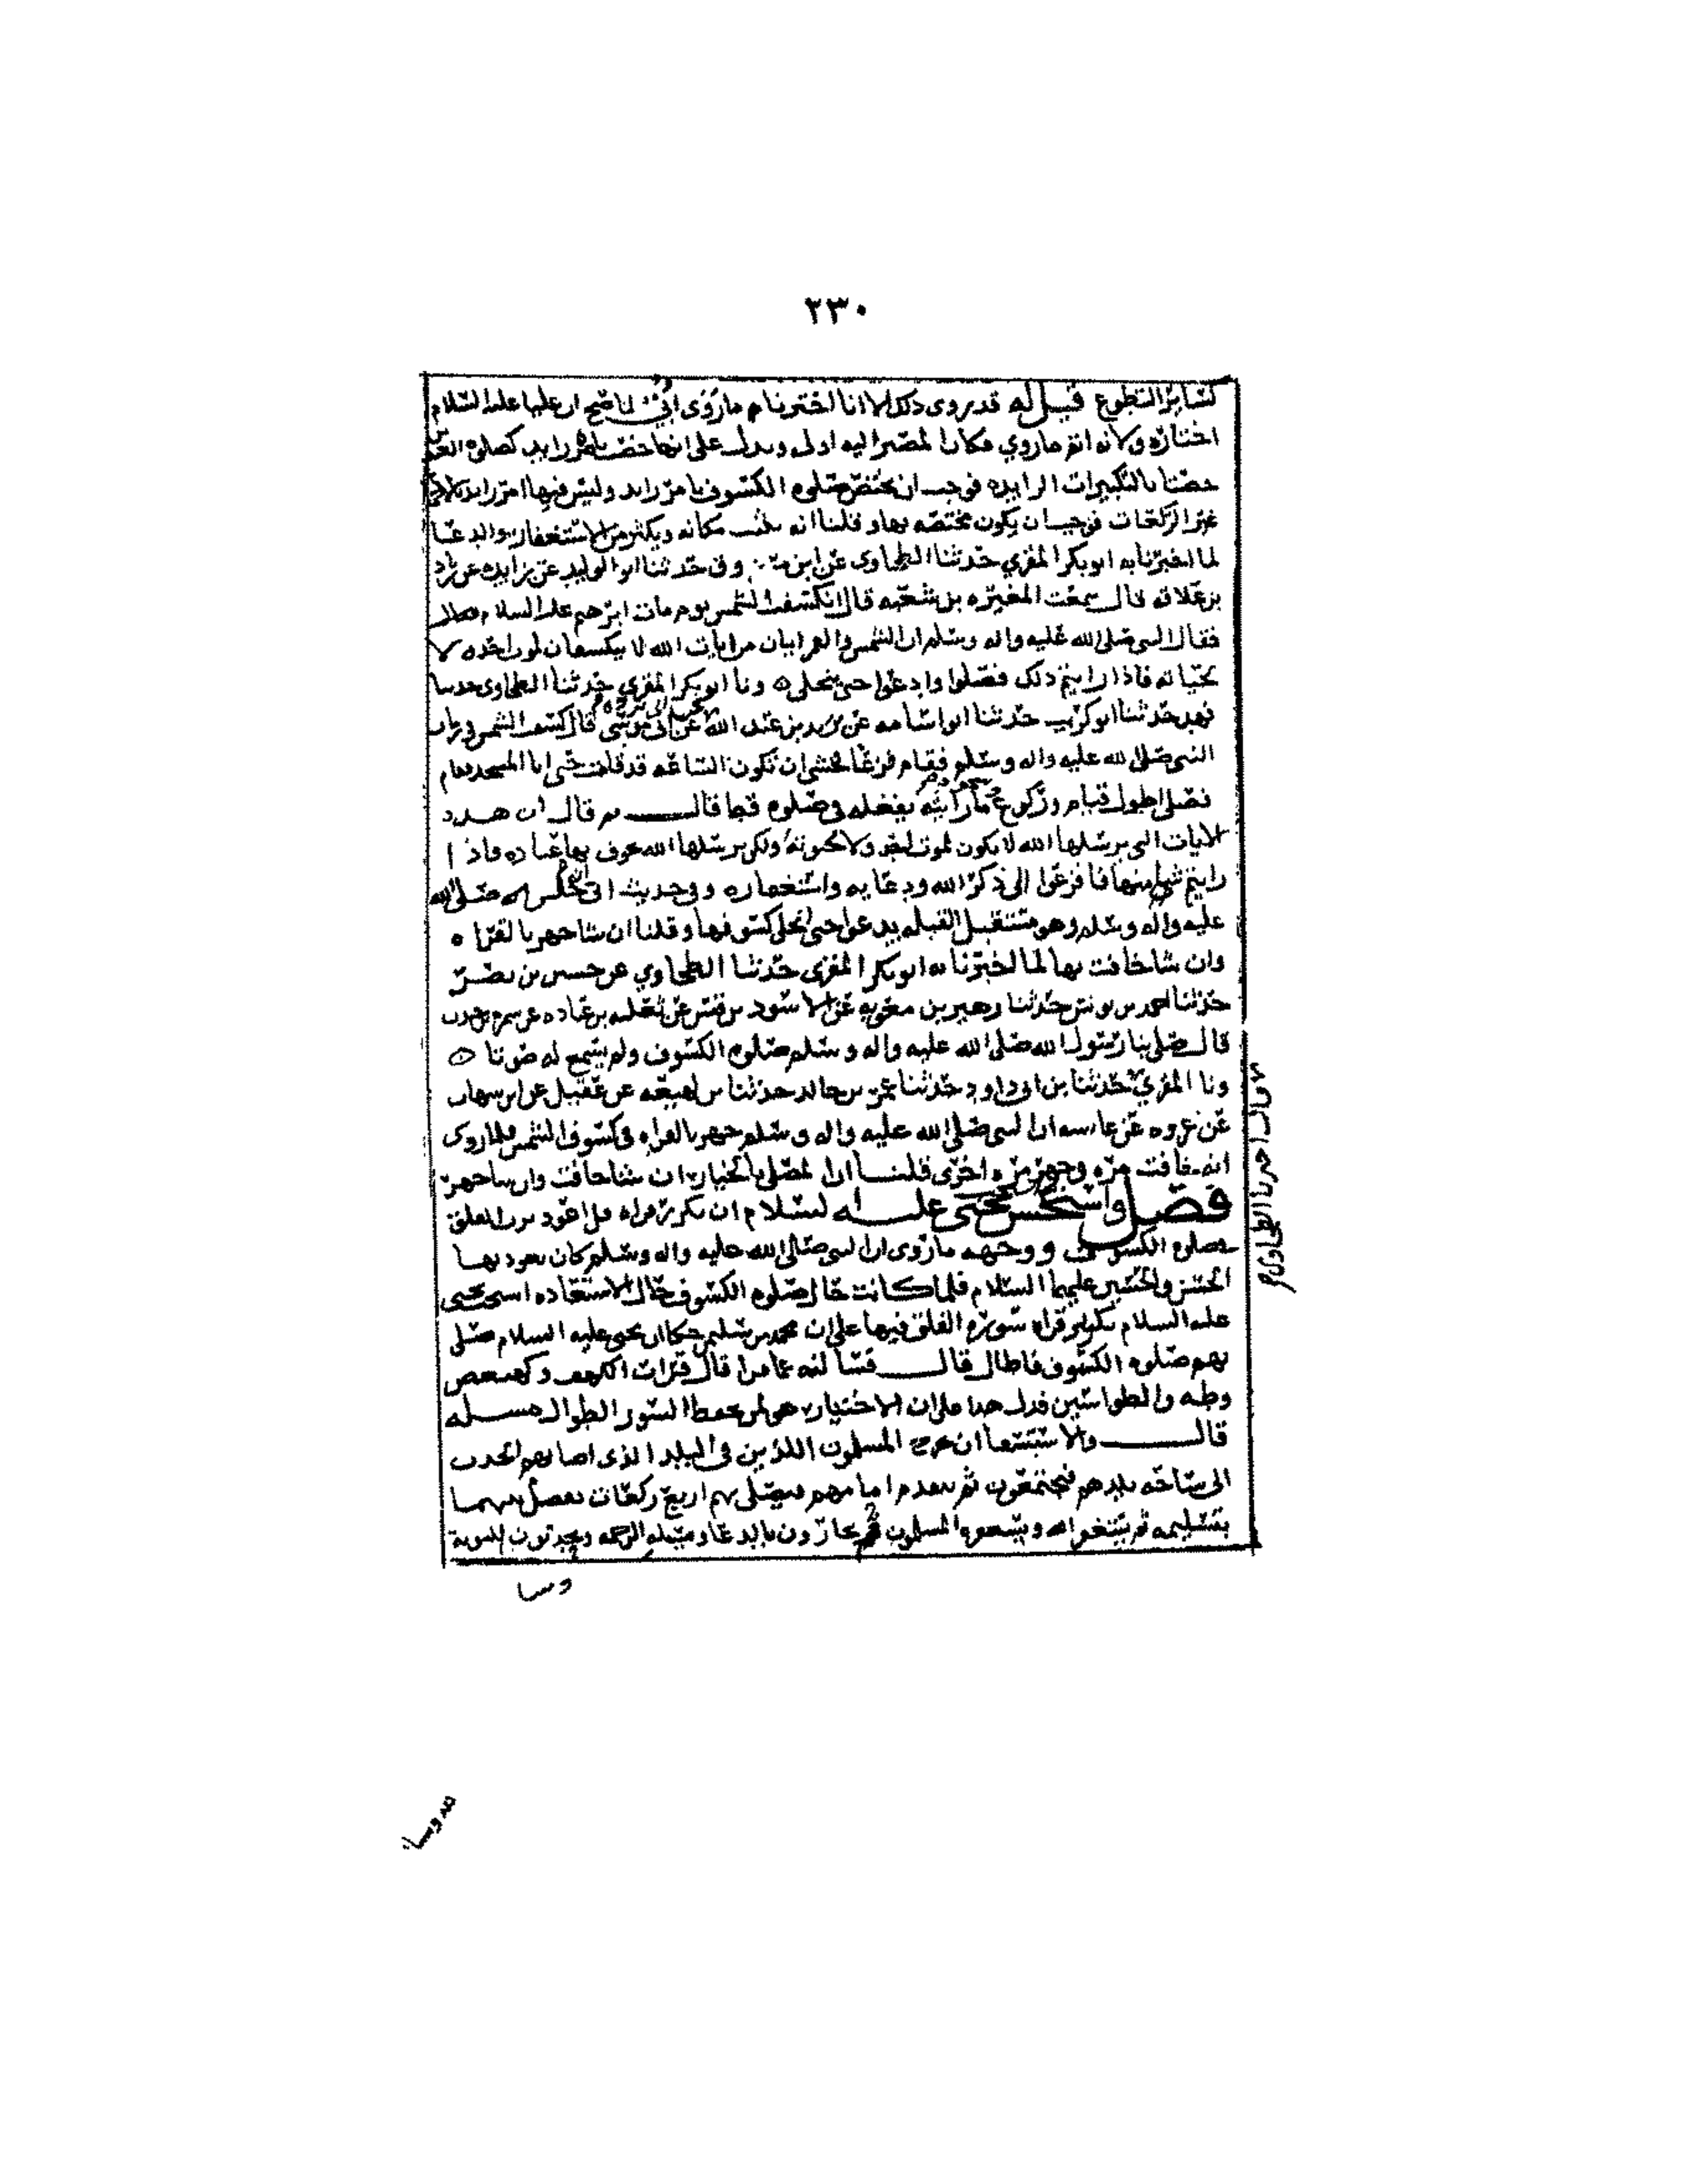 ٢٣٠
كسائر التطوع قيل له قد روى ذلك الا انا اخترنا ما روى ابي لما صح ان عليا عليه السلام
اختاره ولانه اتم ما روي فكان المصير اليه اولى ويدل على انها خصت بامر زايد كصلوه العيد
خصتا بالتكبيرات الزايده فوجب ان يختص صلوه الكسوف بامر زايد وليس فيها امر زايد بالاتفاق
غير الركعات فوجب ان يكون مختصه بها وقلنا انه يلبث مكانه ويكثر من الاستغفار والدعا
لما اخبرنا به ابو بكر المقري حدثنا الطحاوى عن ابن مرزوق حدثنا ابو الوليد عن زايده عن زياد
بن علاقه قال سمعت المغيره بن شعبه قال انكسفت الشمس يوم مات ابرهيم عليه السلام
فقال النبى صلى الله عليه واله وسلم ان الشمس والقمر ايتان من ايات الله لا ينكسفان لموت احد ولا
لحياته فاذا رايتم ذلك فصلوا وادعوا حتى ينجلى ونا ابو بكر المقري حدثنا الطحاوى حدثنا
فهد حدثنا ابو كريب حدثنا ابو اسامه عن بريد بن عبد الله عن ابى موسى قال كسفت الشمس فى زمان
النبى صلى الله عليه واله وسلم فقام فزعا يخشى ان تكون الساعه قد قامت حتى اتا المسجد فقام
فصلى اطول قيام وركوع وسجود ما رايته يفعله فى صلوه قط قال ثم قال ان هذه
الايات التى يرسلها الله لا يكون لموت احد ولا لحيوته ولكن يرسلها الله يخوف بها عباده فاذا
رايتم شيا منها فافزعوا الى ذكر الله ودعايه واستغفاره وفى حديث انه صلى الله
عليه واله وسلم وهو مستقبل القبله يدعوا حتى انجلى كسوفها وقلنا ان شا جهر بالقراه
وان شا خافت بها لما اخبرنا به ابو بكر المقرى حدثنا الطحاوي عن حسين بن نصر
حدثنا احمد بن يونس حدثنا زهير بن معويه عن الاسود بن قيس عن ثعلبه بن عباده عن سمره بن جندب
قال صلى بنا رسول الله صلى الله عليه واله وسلم صلوه الكسوف ولم يسمع له صوتا
ونا المقرى حدثنا بن ابى داود حدثنا عمرو بن خالد حدثنا بن لهيعه عن عقيل عن ابن شهاب
قال اخبرنا الطحاوى
عن عروه عن عايشه ان النبى صلى الله عليه واله وسلم جهر بالقراه فى كسوف الشمس فلما روى
انه خافت مره وجهر مره اخرى قلنا ان المصلى بالخيار ان شا خافت وان شا جهر
فصل واستحسن يحيى عليه السلام ان يكرر قراه قل اعوذ برب الفلق
بصلوه الكسوف ووجهه ما روى ان النبى صلى الله عليه واله وسلم كان يعوذ بها
الحسن والحسين عليهما السلام فلما كانت حال صلوه الكسوف حال الاستعاذه استحب يحيى
عليه السلام تكرير قراه سوره الفلق فيها على ان محمد بن سليمن حكا ان يحيى عليه السلام صلى
بهم صلوه الكسوف فاطال قال فسالته عما قرا قال قرات الكهف وكهيعص
وطه والطواسين فدل هذا على ان الاختيار هو لمن يحفظ السور الطوال مسله
قال والاستسقا ان يخرج المسلمون اللذين فى البلد الذى اصابهم الجدب
الى ساحه بلدهم فيجتمعون ثم يتقدم امامهم فيصلى بهم اربع ركعات يفصل بينهما
بتسليمه ثم يستغفر الله ويستغفره المسلمون ثم يجارون بالدعا ومسله الرحمه ويجددون التوبه
وسا